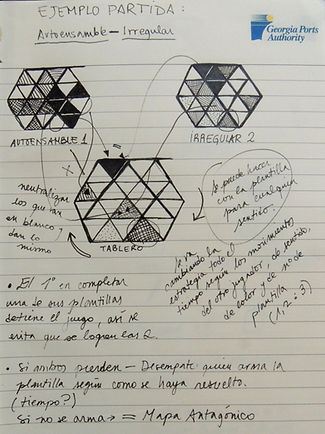 EJEMPLO PARTIDA:
Autoensamble – Irregular
Georgia Ports
Authority
AUTOENSAMBLE 1
IRREGULAR 2
TABLERO
neutralizar
los que tan
en blanco y
dan lo
mismo
Se puede hacer
con la plantilla
para cualquier
sentido.
Se va
cambiando la
estrategia todo el
tiempo según los movimientos
del otro jugador, de sentido,
de color y de no de
plantilla
(1, 2 ó 3)
• El 1° en completar
una de sus plantillas
detiene el juego, así se
evita que se logren las 2.
• Si ambos pierden – Desempate: quien arma la
plantilla según como se haya resuelto.
(tiempo?)
Si no se arma → = Mapa Antagónico